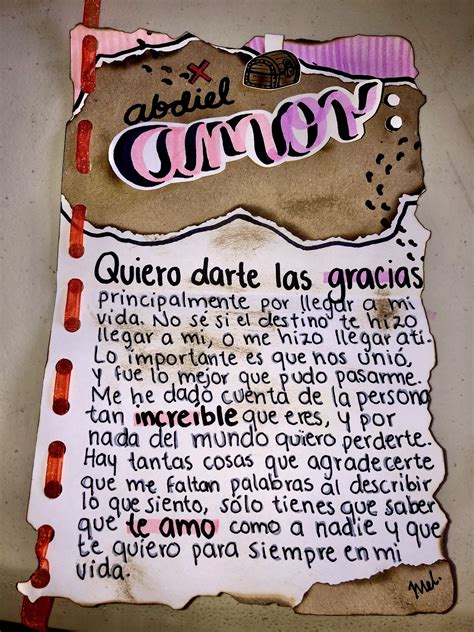 abdiel
amor
Quiero darte las gracias
principalmente por llegar a mi
vida. No sé si el destino te hizo
llegar a mi, o me hizo llegar a ti.
Lo importante es que nos unió,
y fue lo mejor que pudo pasarme.
Me he dado cuenta de la persona
tan increible que eres, y por
nada del mundo quiero perderte.
Hay tantas cosas que agradecerte
que me faltan palabras al describir
lo que siento, sólo tienes que saber
que te amo como a nadie y que
te quiero para siempre en mi
vida.
Mel.